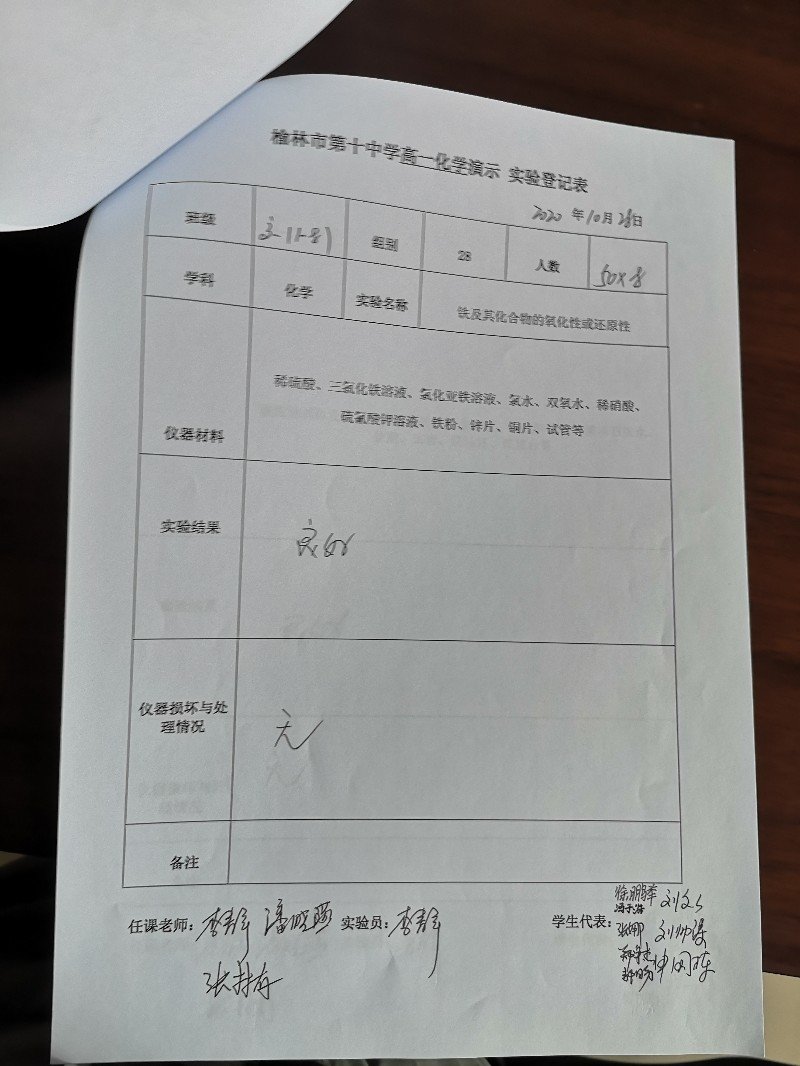 榆林市第十中学高一化学演示 实验登记表
2020 年 10 月 28 日
班级 高一(1-8) 组别 28 人数 50×8
学科 化学 实验名称 铁及其化合物的氧化性或还原性
仪器材料 稀硫酸、三氯化铁溶液、氯化亚铁溶液、氯水、双氧水、稀硝酸、
硫氰酸钾溶液、铁粉、锌片、铜片、试管等
实验结果 良好
仪器损坏与处
理情况 无
备注
任课老师: 李静 实验员: 李静 学生代表: